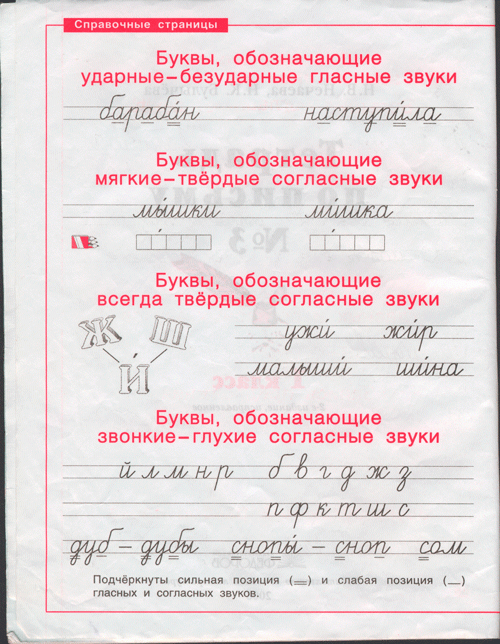 Справочные страницы
Буквы, обозначающие
ударные–безударные гласные звуки
бараба́н наступи́ла
Буквы, обозначающие
мягкие–твёрдые согласные звуки
мы́шки ми́шка
Буквы, обозначающие
всегда твёрдые согласные звуки
Ж Ш
И́
ужи́ жи́р
малыши́ ши́на
Буквы, обозначающие
звонкие–глухие согласные звуки
й л м н р б в г д ж з
п ф к т ш с
дуб – дубы́ снопы́ – сноп сом
Подчёркнуты сильная позиция (=) и слабая позиция (—)
гласных и согласных звуков.